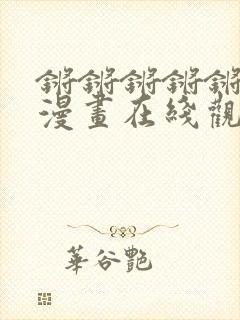 锵锵锵锵锵
漫畫在綫觀
華谷艷